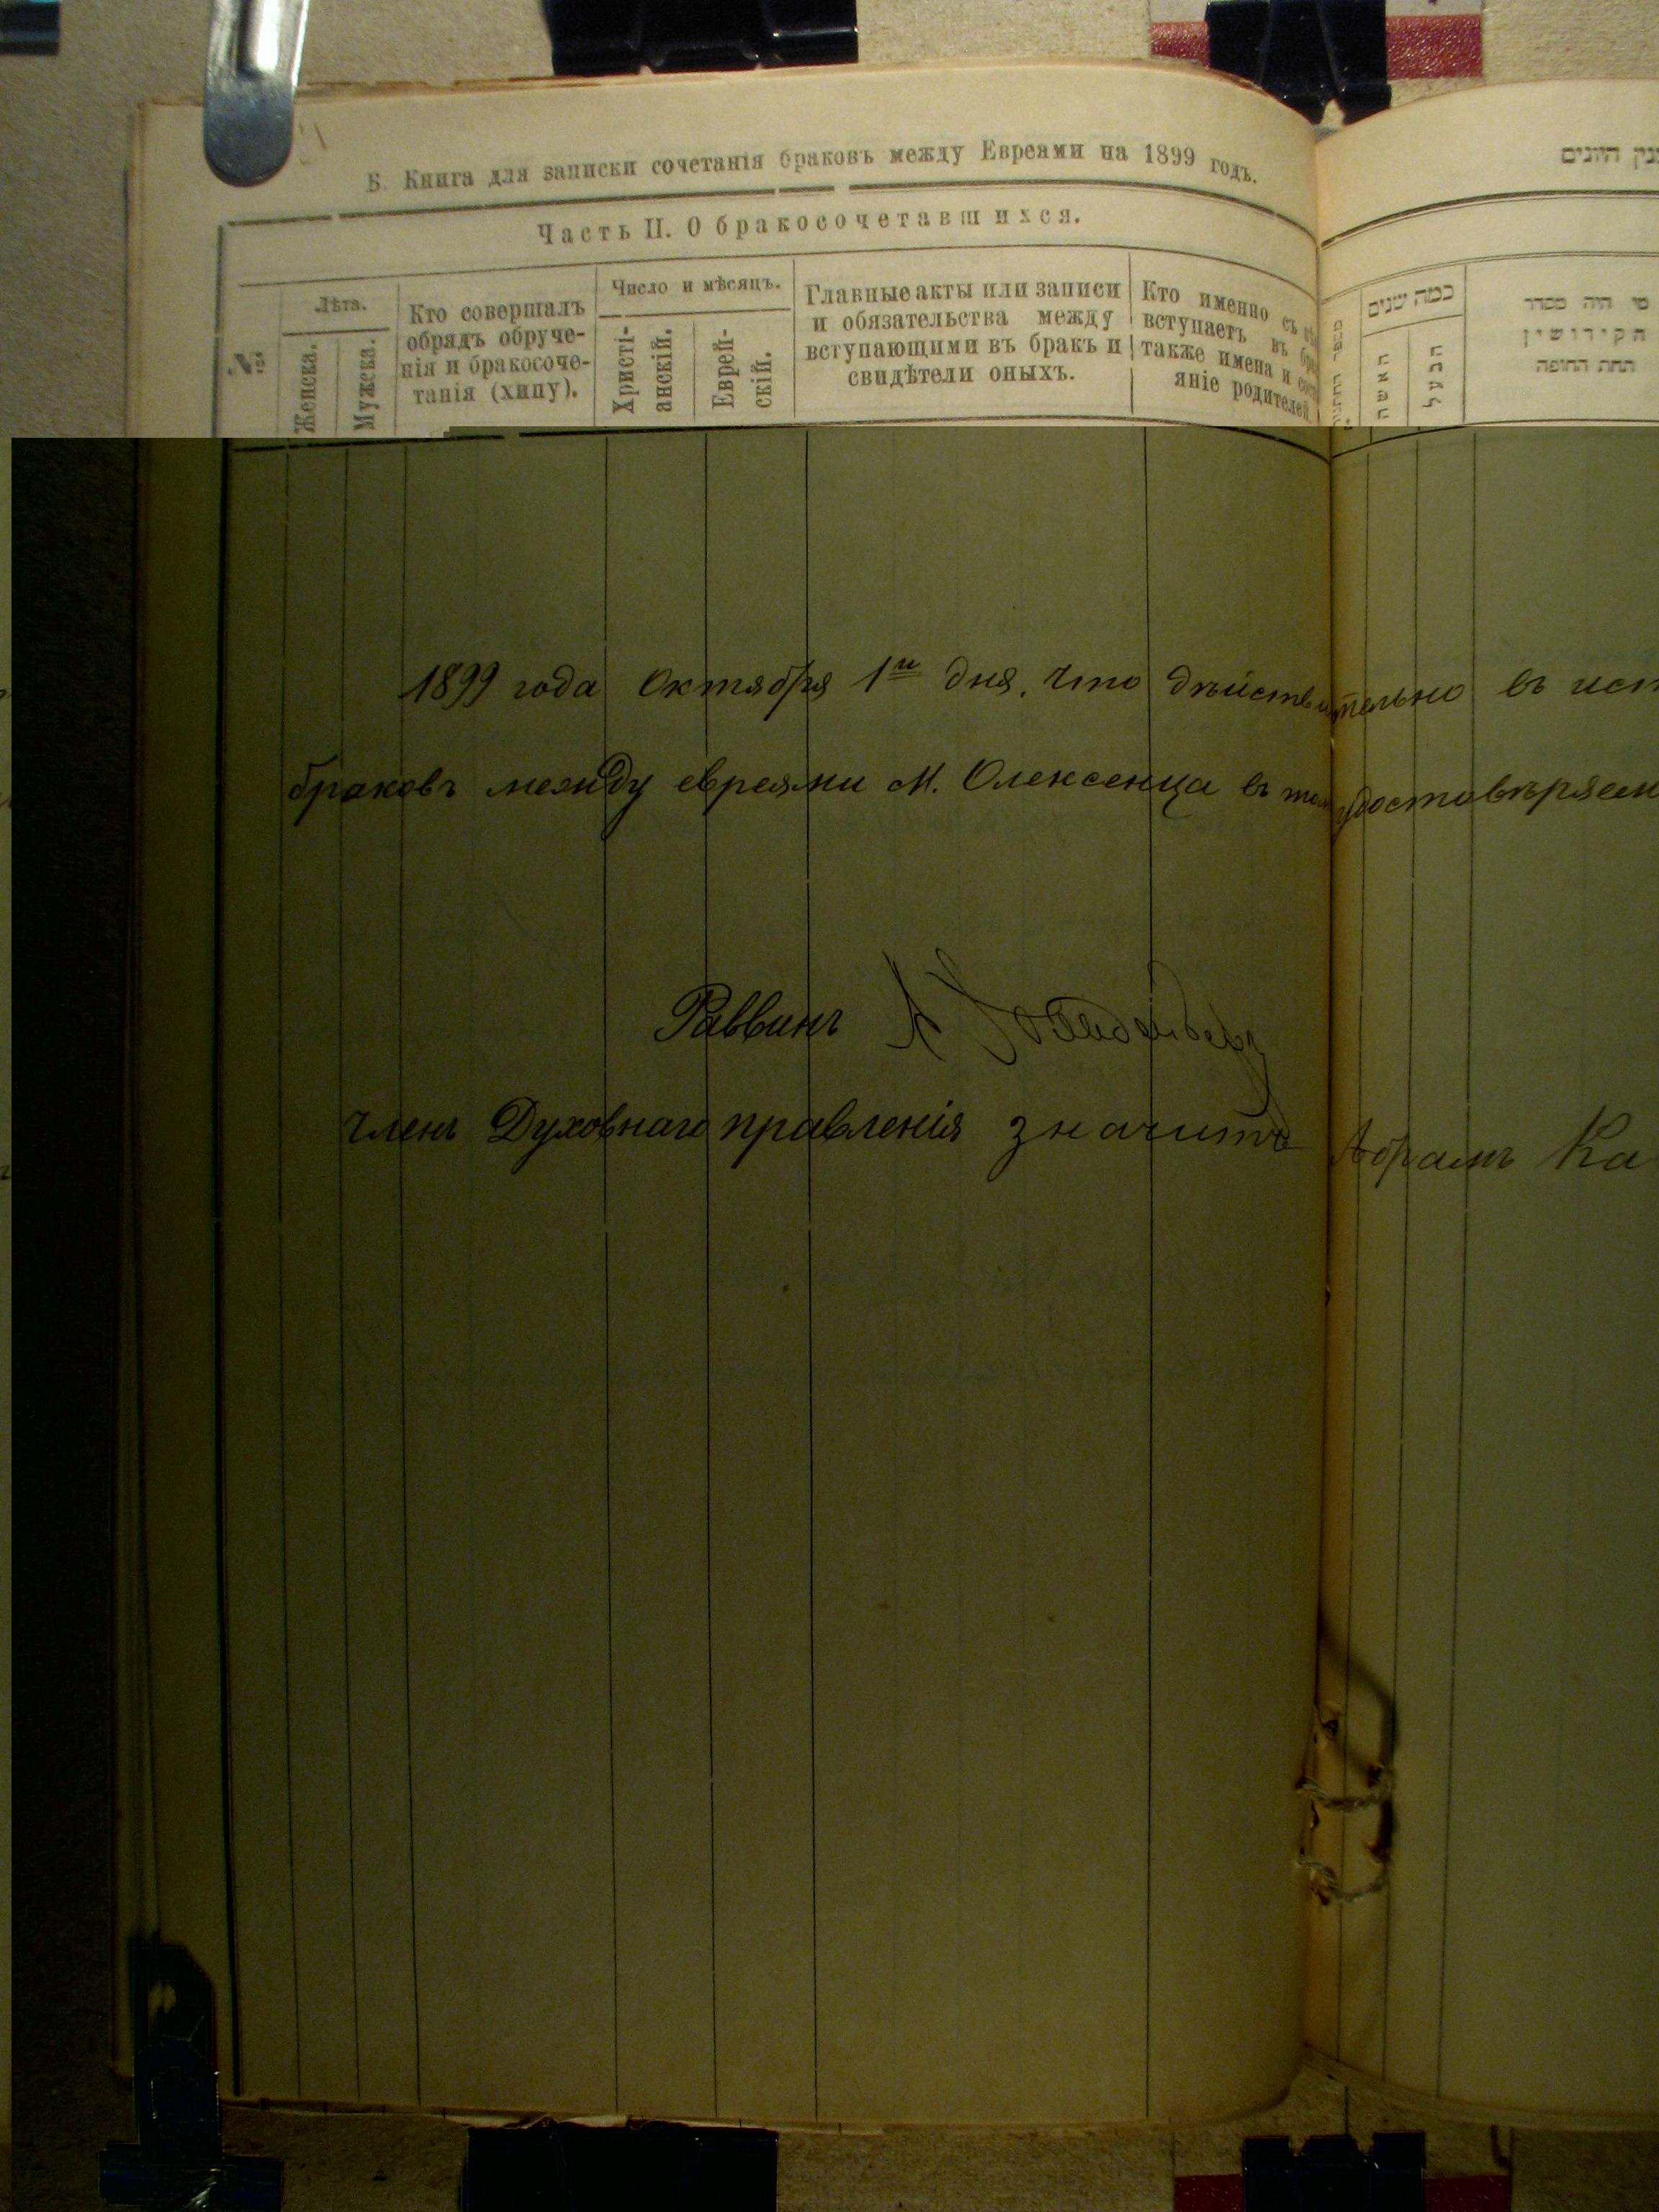 Б. Книга для записки сочетанія браковъ между Евреями на 1899 годъ.
Часть II. О бракосочетавшихся.
№
Лѣта.
Женска.
Мужска.
Кто совершалъ
обрядъ обруче-
нія и бракосоче-
танія (хипу).
Число и мѣсяцъ.
Христі-
анскій.
Еврей-
скій.
Главные акты или записи
и обязательства между
вступающими въ бракъ и
свидѣтели оныхъ.
Кто именно съ
вступаетъ въ
также имена и
яніе родителей
הזוגים
כמה שנים
האשה
הבעל
מי היה מסדר
הקידושין
תחת החופה
1899 года Октября 1го дня, что дѣйствительно въ
браковъ между евреями М. Олексенца въ удостовѣряем
Раввинъ
Членъ Духовнаго правленія значитъ Абрамъ Ка